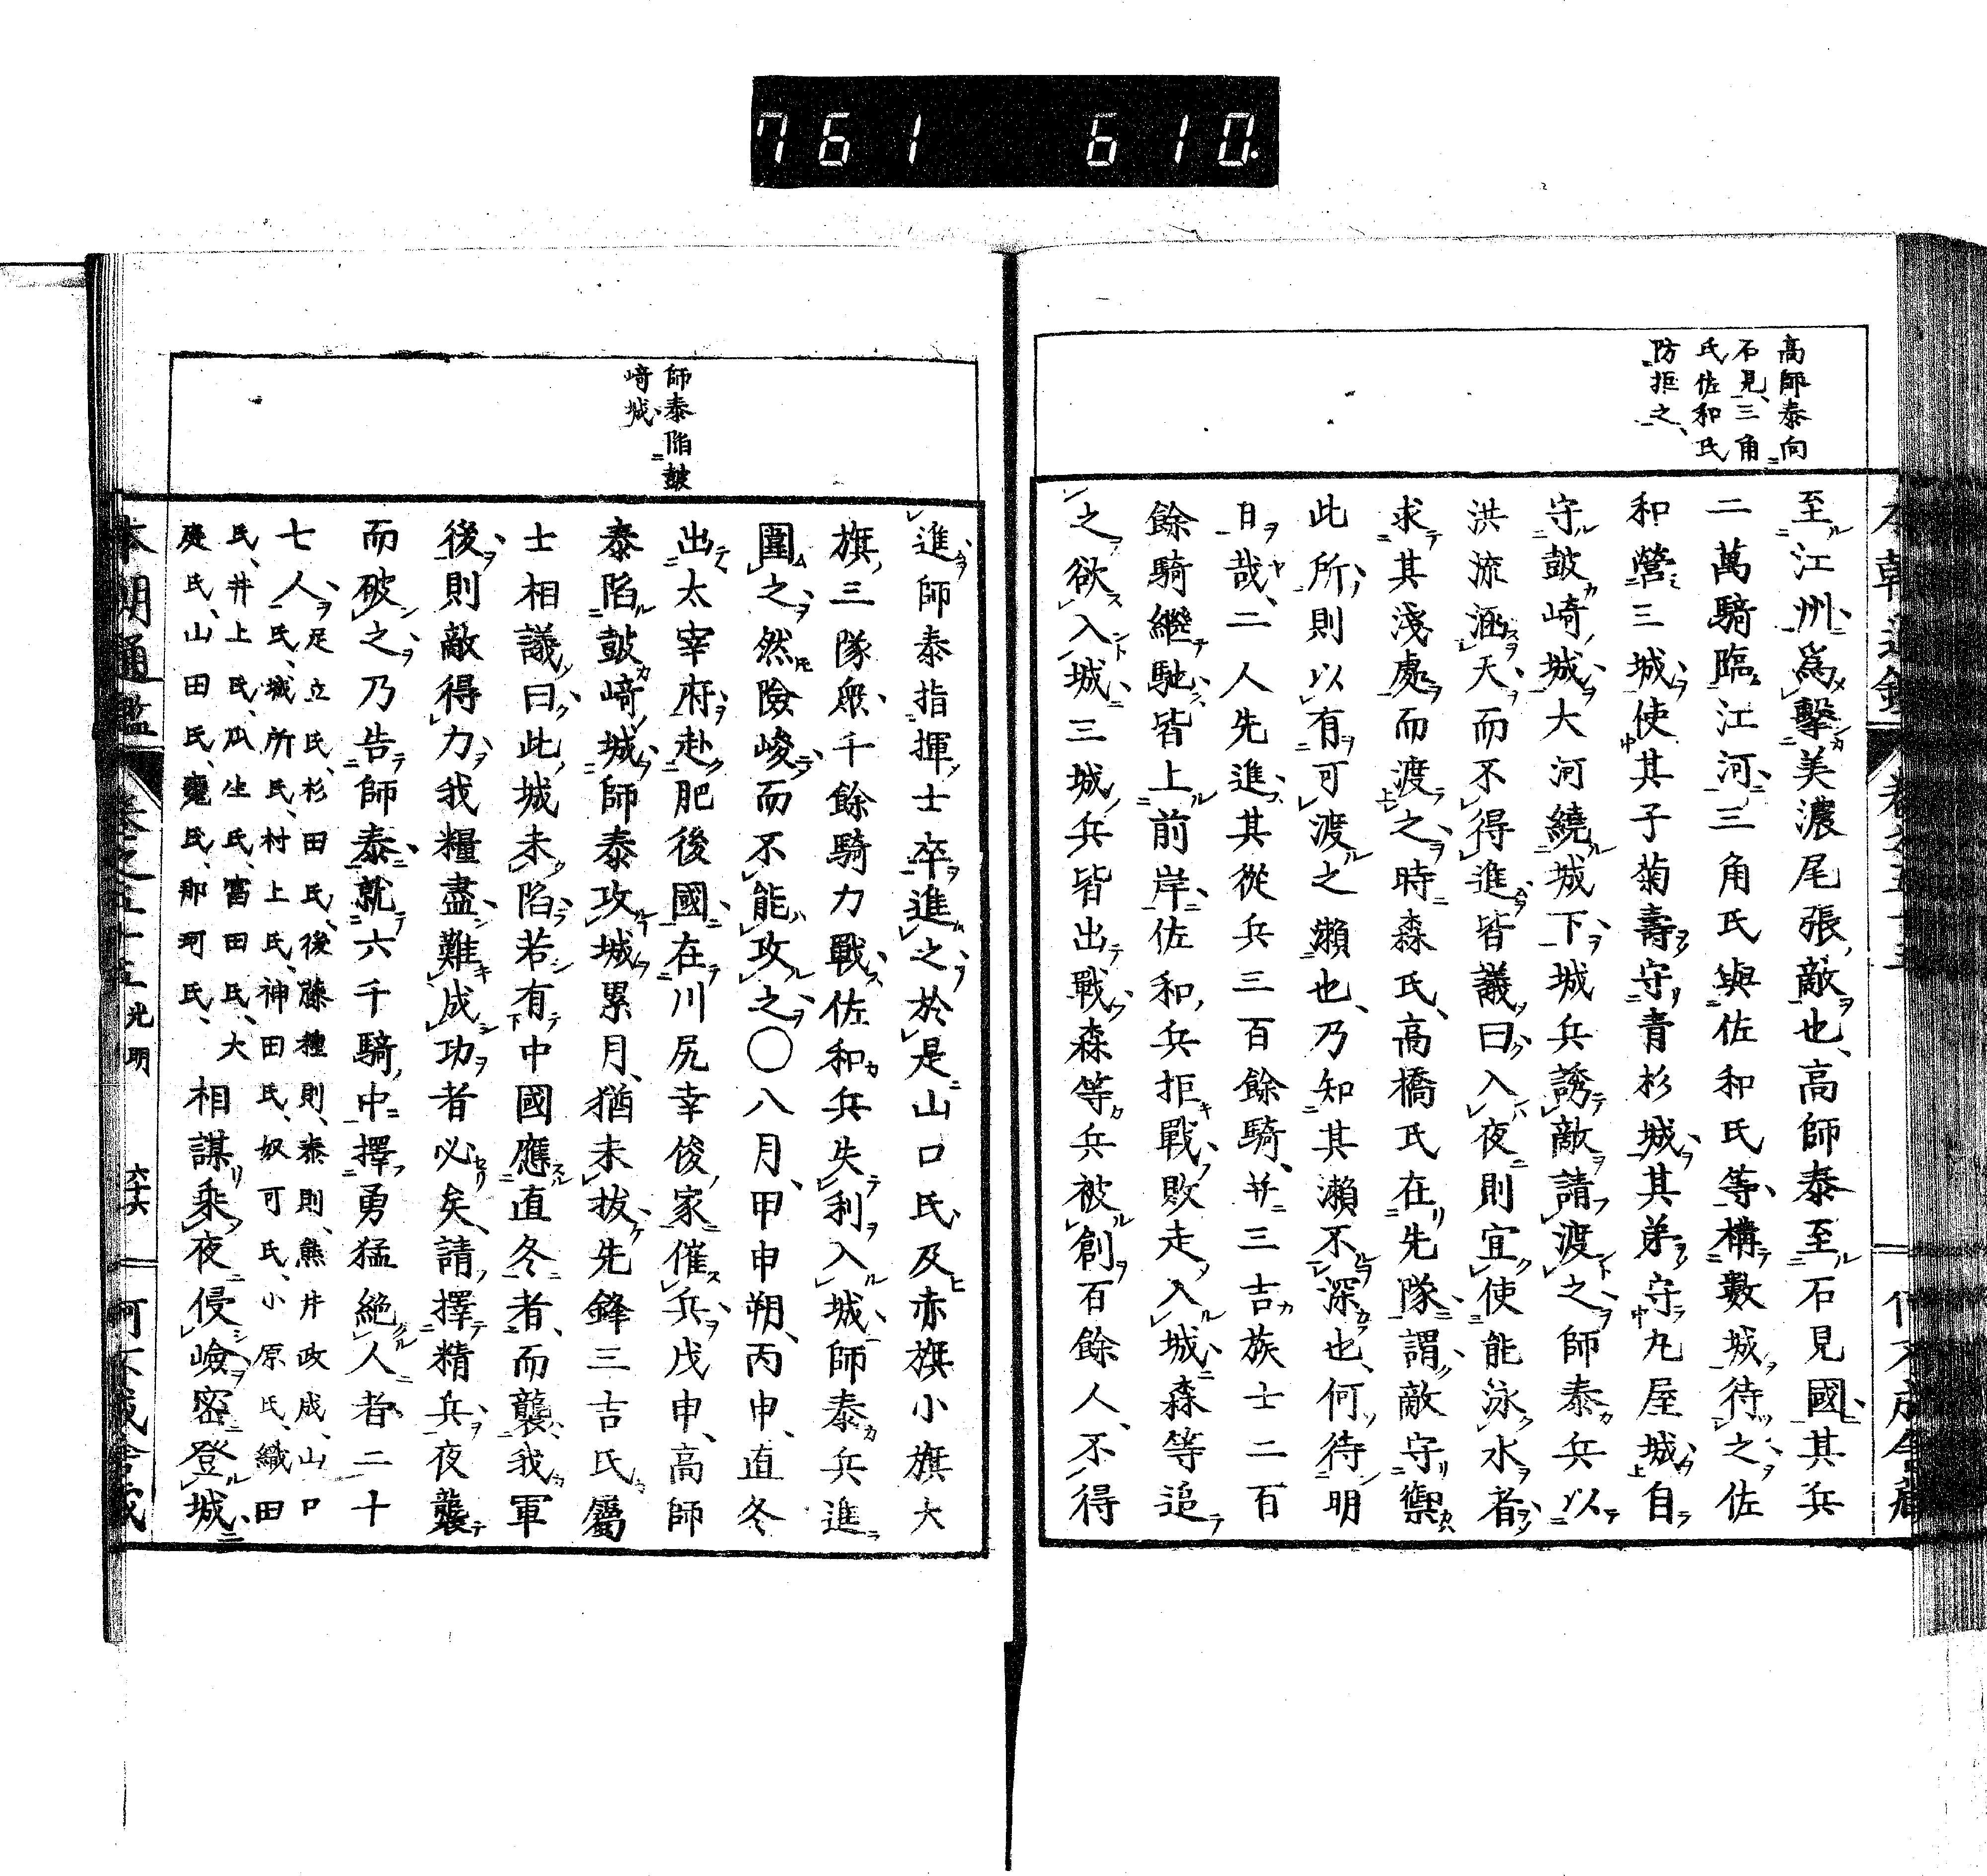 761 610.
高師泰向
石見三角
氏佐和氏
防拒之
至江州爲擊美濃尾張敵也高師泰至石見國其兵
二萬騎臨江河三角氏與佐和氏等構數城待之佐
和營三城使其子菊壽守青杉城其弟守丸屋城自
守鼓崎城大河繞城下城兵誘敵請渡之師泰兵以
洪流涵天而不得進皆議曰入夜則宜使能泳水者
求其淺處而渡之時森氏高橋氏在先隊謂敵守禦
此所則以有可渡之瀨也乃知其瀨不深也何待明
日哉二人先進其從兵三百餘騎并三吉族士二百
餘騎繼馳皆上前岸佐和兵拒戰敗走入城森等追
之欲入城三城兵皆出戰森等兵被創百餘人不得
師泰陷鼓
崎城
進師泰指揮士卒進之於是山口氏及赤旗小旗大
旗三隊衆千餘騎力戰佐和兵失利入城師泰兵進
圍之然險峻而不能攻之〇八月甲申朔丙申直冬
出太宰府赴肥後國在川尻幸俊家催兵戊申高師
泰陷鼓崎城師泰攻城累月猶未拔先鋒三吉氏屬
士相議曰此城未陷若有中國應直冬者而襲我軍
後則敵得力我糧盡難成功者必矣請擇精兵夜襲
而破之乃告師泰就六千騎中擇勇猛絶人者二十
七人足立氏杉田氏後藤種則泰則熊井政成山口
氏城所氏村上氏神田氏奴可氏小原氏織田
氏井上氏瓜生氏富田氏大
庭氏山田氏甕氏那珂氏相謀乘夜侵嶮密登城
本朝通鑑 卷之 光明 六十六